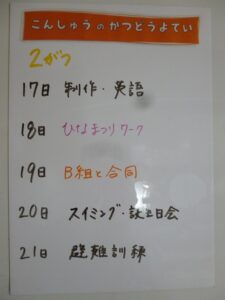 こんしゅうのかつどうよてい
2がつ
17日 制作・英語
18日 ひなまつりワーク
19日 B組と合同
20日 スイミング・誕生日会
21日 避難訓練